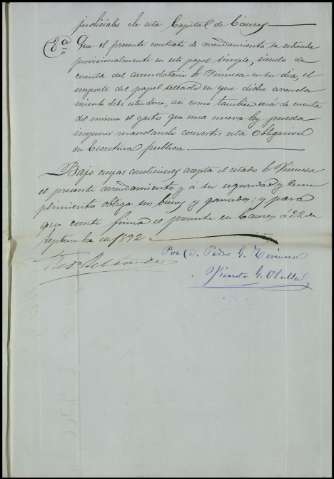 judiciales de esta Capital de Cáceres
6ª Que el presente contrato de arrendamiento se extiende
provisionalmente en este papel simple, siendo de
cuenta del arrendatario Sr. en su dia, el
importe del papel sellado en que dicho arrenda
miento debe estenderse, asi como tambien será de cuenta
del mismo el gasto que una nueva ley pueda
imponer mandando convertir esta obligacion
en Escritura publica.
Bajo cuyas condiciones acepta el citado Sr.
el presente arrendamiento y á su seguridad y cum
plimiento obliga sus bienes y ganados, y para
que conste firma el presente en Cáceres á 22 de
Septiembre de 1892
Por D. Pedro G.
Vicente G.